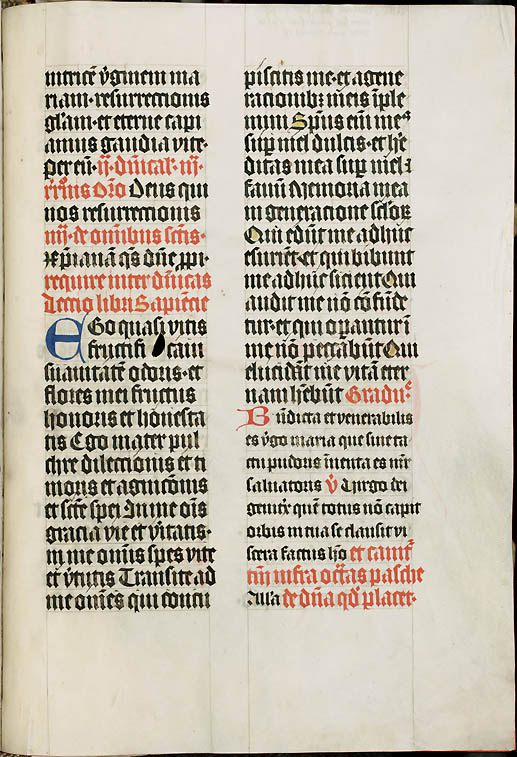 nitricē v̄ginem ma
riam·resurrectionis
gl̄am·et eterne capi
amus gaudia vite·
per eū· ij· dn̄ical· iij·
Deus qui
nos resurrectionis
iiij· de om̄ibus sctīs·
qs̄ dn̄e ꝓpi·
require inter dn̄icas
Lectio libri Sapiētie
EGo quasi vitis
fructifi caui
suauitatē odoris·et
flores mei fructus
honoris et honesta
tis Ego mater pul
chre dilectionis et ti
moris et agnicōnis
et scte᷑ spei In me oīs
gracia vie et v̄itatis·
in me om̄is spes vite
et v̄tutis Transite ad
me om̄es qui concu
piscitis me·et a gene
racionibꝫ meis īple
mini Spūs eni᷑ me᷒
suꝑ mel dulcis·et he᷑
ditas mea suꝑ mel ⁊
fauū Memoria mea
in generatione sclo᷑ꝝ
Qui edūt me adhuc
esuriēt·et qui bibunt
me adhuc sicient Qui
audit me nō cōfūde
tur·et qui oꝑantur ī
me nō peccabūt Qui
elucidāt me vitā eter
nam hēbūt Gradu᷒
Bn̄dicta et venerabilis
es v̄go maria que sine ta
ctu pudoris īuenta es mr̄
saluatoris ℣ Virgo dei
genitͥx quē totus nō capit
orbis in tua se clausit vi
scera factus hō et cantͣ
tm̄ infra octas᷑ pasche
Alla de dn̄a qd̄ placet·